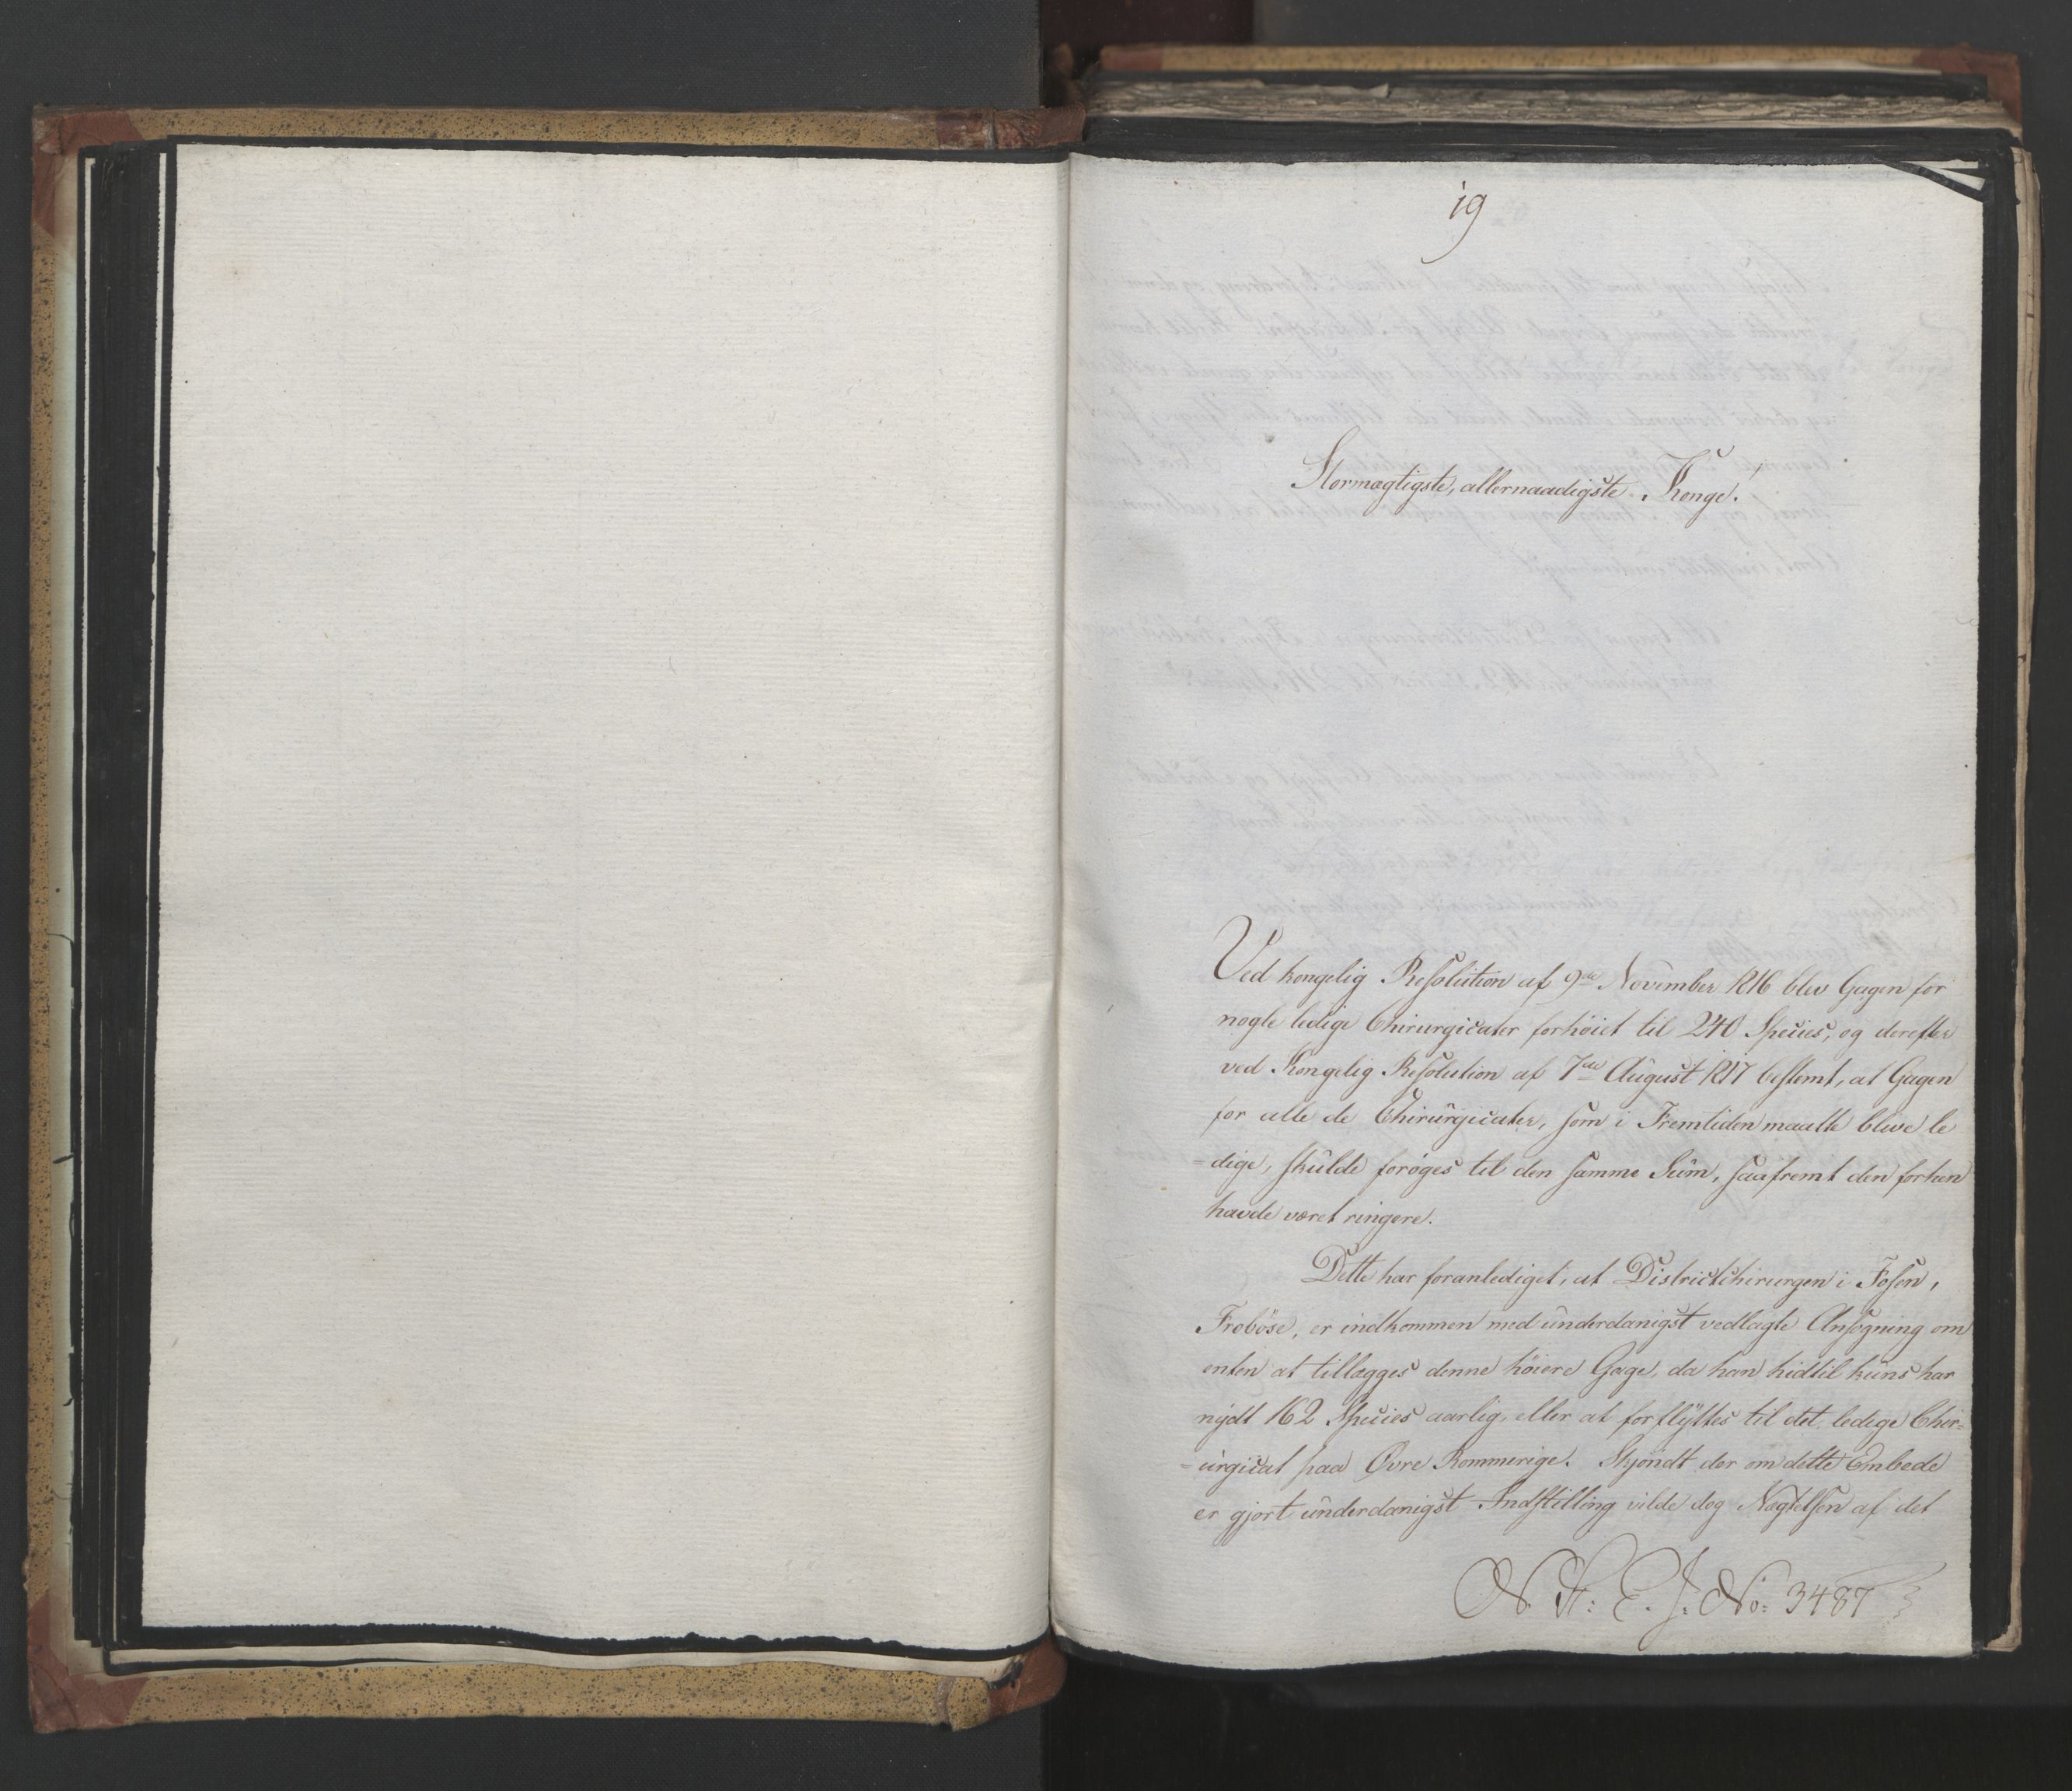 19
Stormægtigste, allernaadigste Konge!
Ved kongelig Resolution af 9de November 1816 blev Gagen for
nogle ledige Chirurgicater forhøiet til 240 Species, og derefter
ved Kongelig Resolution af 7de August 1817 bestemt, at Gagen
for alle de Chirurgicater, som i Fremtiden maatte blive le
-dige, skulde forøges til den samme Sum, saafremt den forhen
havde været ringere.
Dette har foranlediget, at Districtchirurgen i Fosen,
Froböse, er indkommen med underdanigst vedlagte Ansøgning om
enten at tillægges denne høiere Gage, da han hidtil kuns har
nydt 162 Species aarlig, eller at forflyttes til det ledige Chir-
-urgicat paa Øvre Rommerige. Skjøndt der om dette Embede
er gjort underdanigst Indstilling vilde dog Nægtelsen af det
N. St: E. J: No: 3487